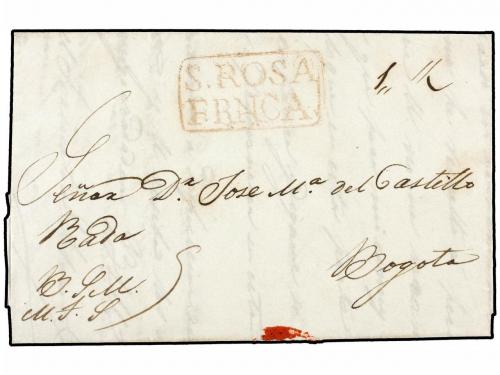 S. ROSA
FRNCA.
Señor Dn. Jose Ma. del Castillo
Rada
Bogota